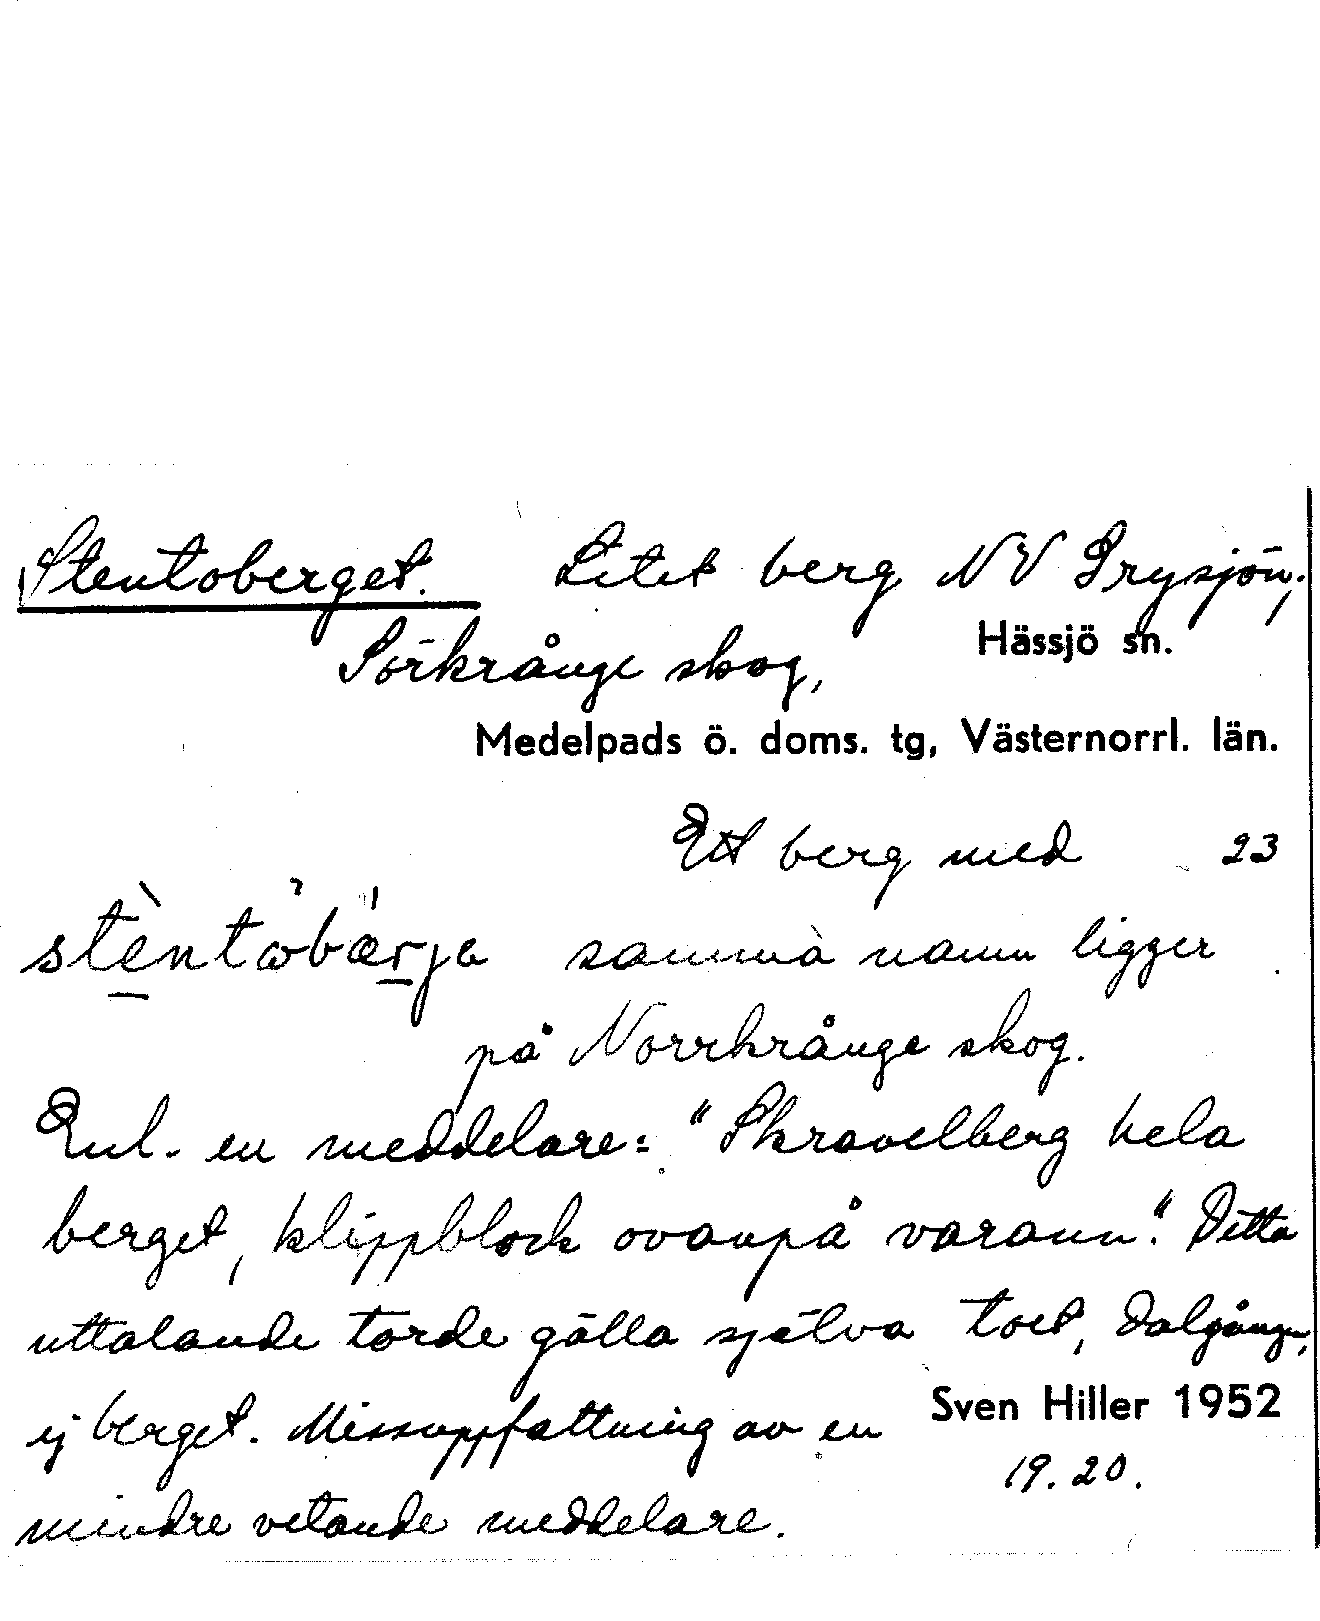 Stentoberget. Litet berg NV Drysjön,
Hässjö sn.
Sörkrånge skog,
Medelpads ö. doms. tg, Västernorrl. län.
Ett berg med 23
samma namn ligger
på Norrkrånge skog.
Enl. en meddelare: "Skravelberg hela
berget, klippblock ovanpå varann". Detta
uttalande torde gälla själva toet, dalgången,
ej berget. Missuppfattning av en
Sven Hiller 1952
19. 20.
mindre vetande meddelare.